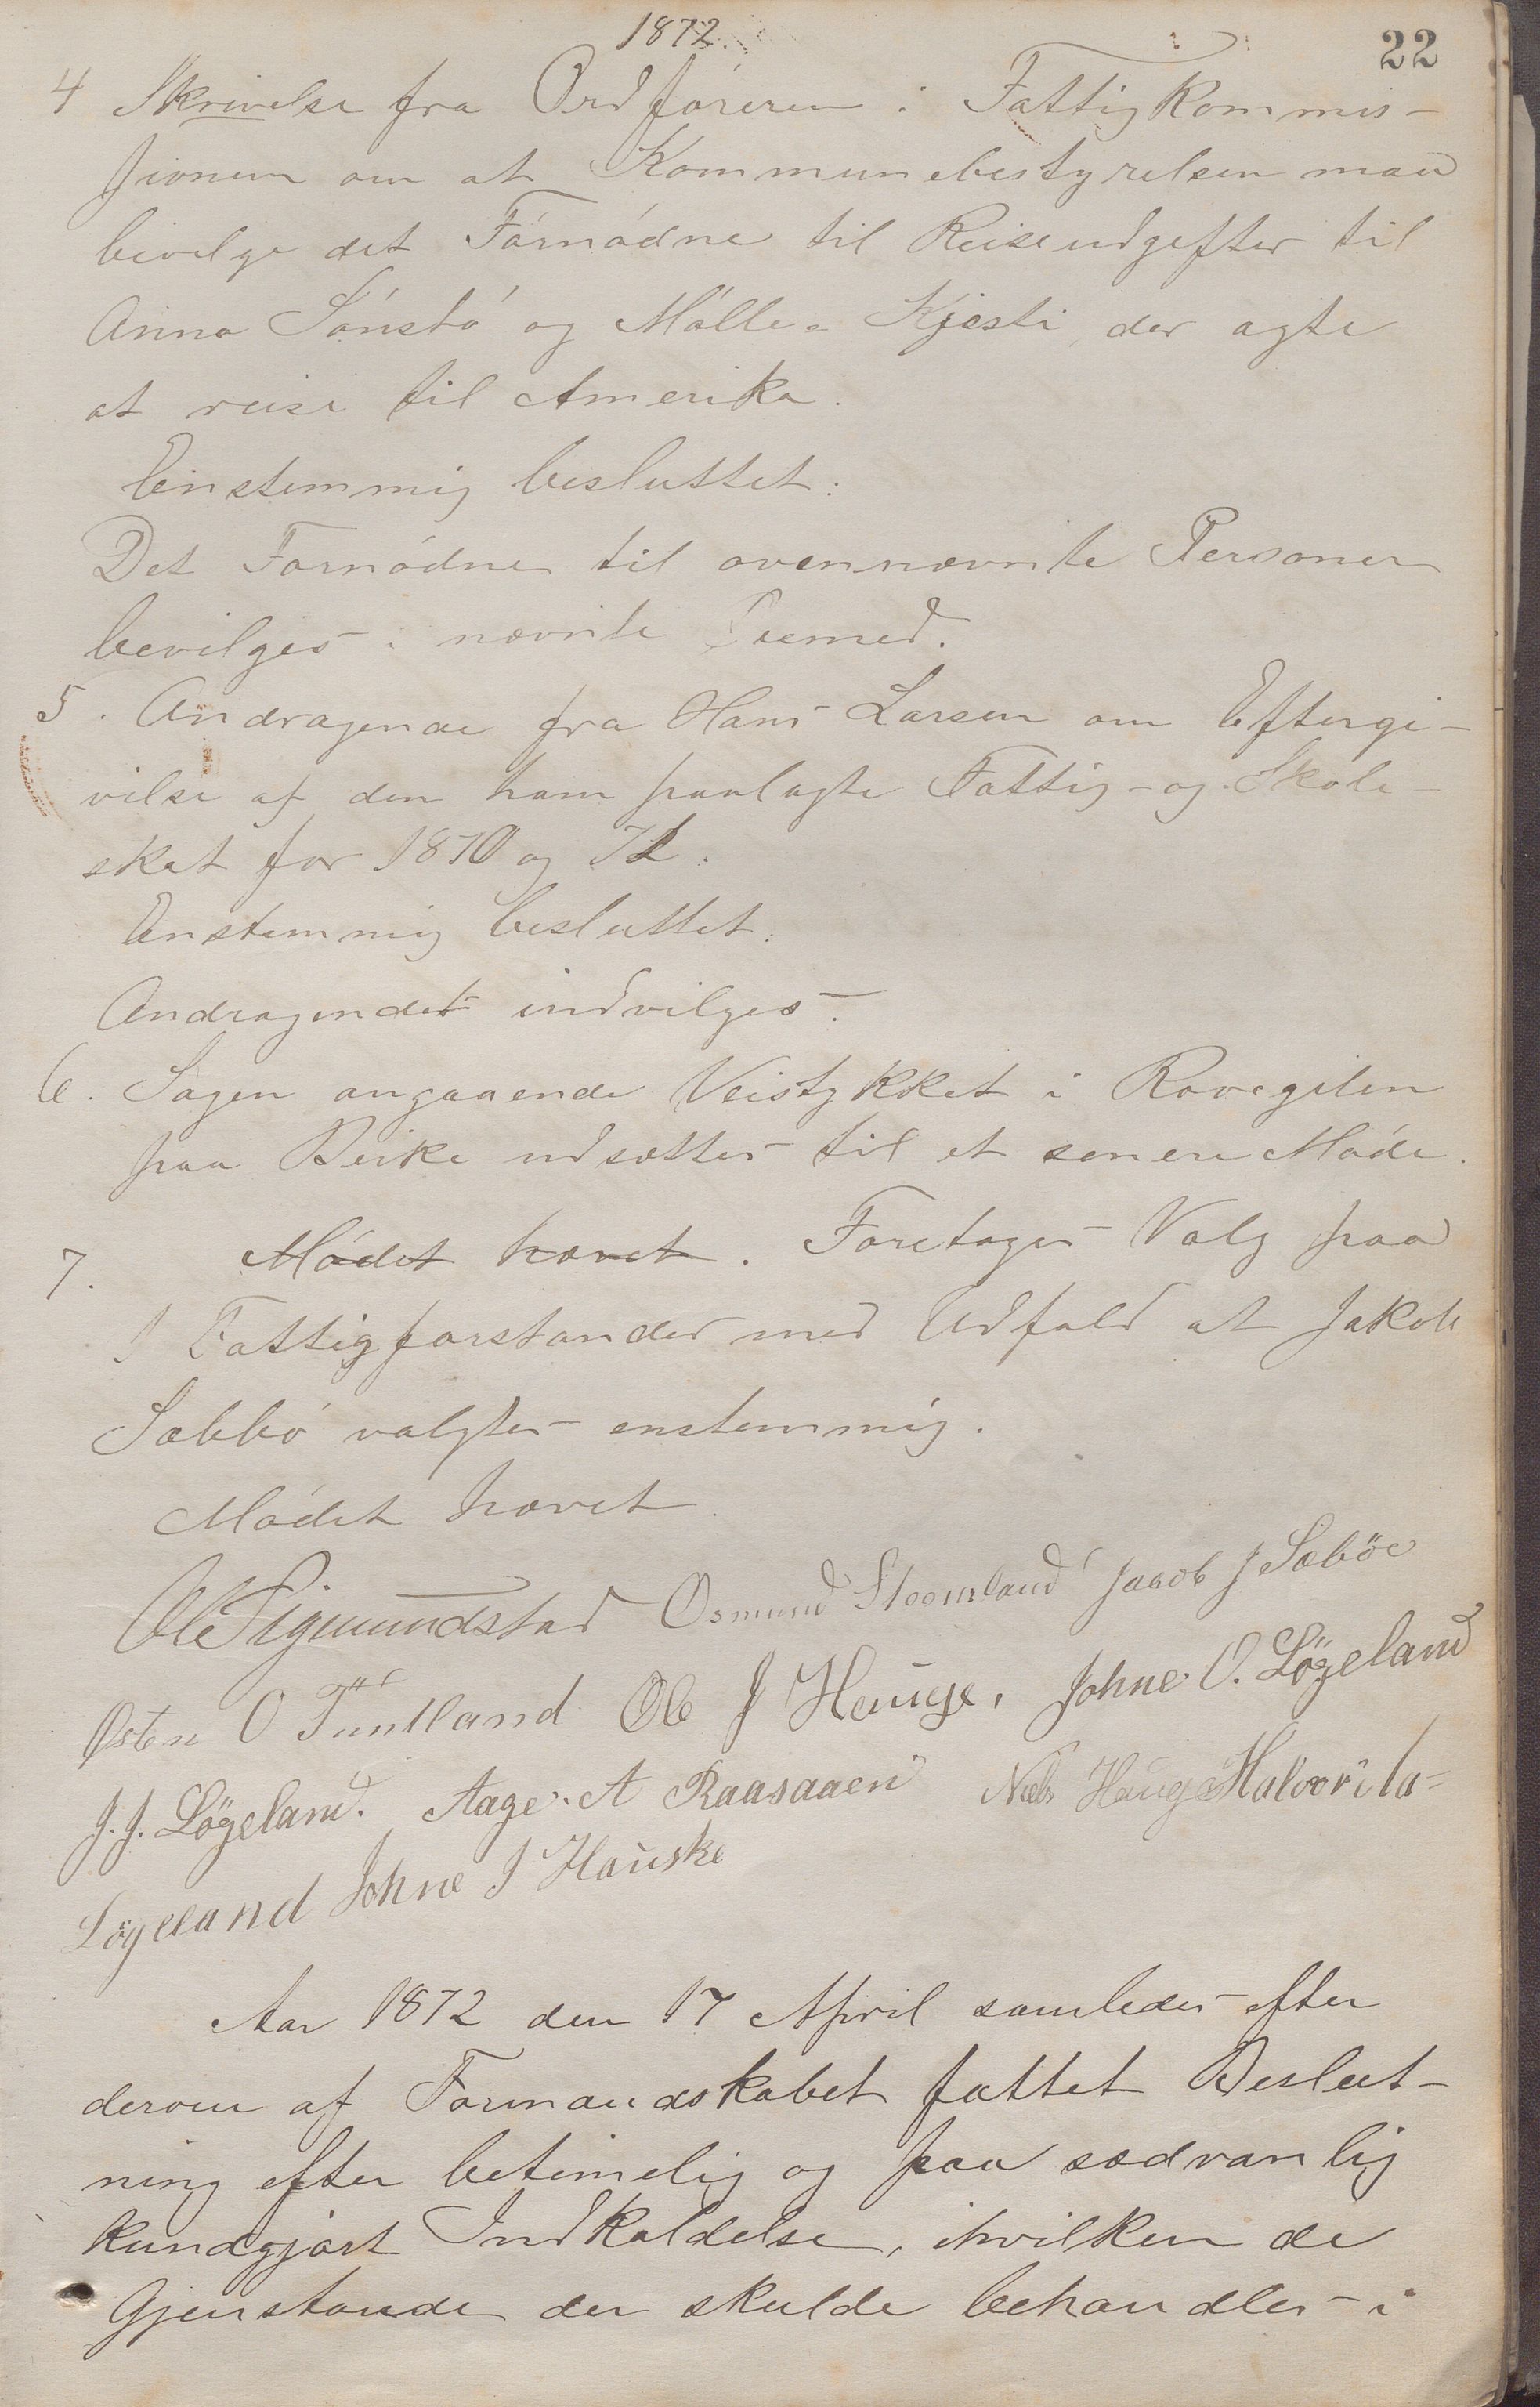 1872.
22
4 Skrivelse fra Ordføreren i Fattigkommis-
sionen om at Kommunebestyrelsen maa
bevilge det Fórnódne til Reiseudgifter til
Anna Sónstó og Mólle- Kjesti, der agte
at reise til Amerika.
Enstemmig besluttet:
Det Fornódne til ovennævnte Personer
bevilges i nævnte Øiemed.
5. Andragende fra Hans Larsen om Eftergi-
velse af den ham paalagte Fattig- og Skole-
skat for 1870 og 71.
Enstemmig besluttet:
Andragendet indvilges.
6. Sagen angaaende Veistykket i Rovegilen
paa Beike udsættes til et senere Móde.
7. Módet hævet. Foretoges Valg paa
1 Fattigforstander med Udfald at Jakob
Sæbbó valgtes enstemmig.
Módet hævet
Ole Sigmundstad Osmund Stoourland Jacob J Sæböe
Østen O Tuntland Ole J Hauge. Johne O. Lögeland
J. J. Lögeland. Aage. A Raasaaen Nels Hauge Halvor
Lögeland Johne J Hauske
Aar 1872 den 17 April samledes efter
derom af Formandskabet fattet Beslut-
ning efter betimelig og paa sædvanlig
kundgjort Indkaldelse, ihvilken de
Gjenstande der skulde behandles i